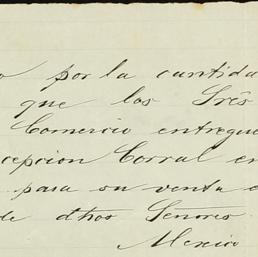 o por la cantida
que los Srês
Comercio entregue
cepcion Corral en
para su venta e
de dhos Señores
Mexico